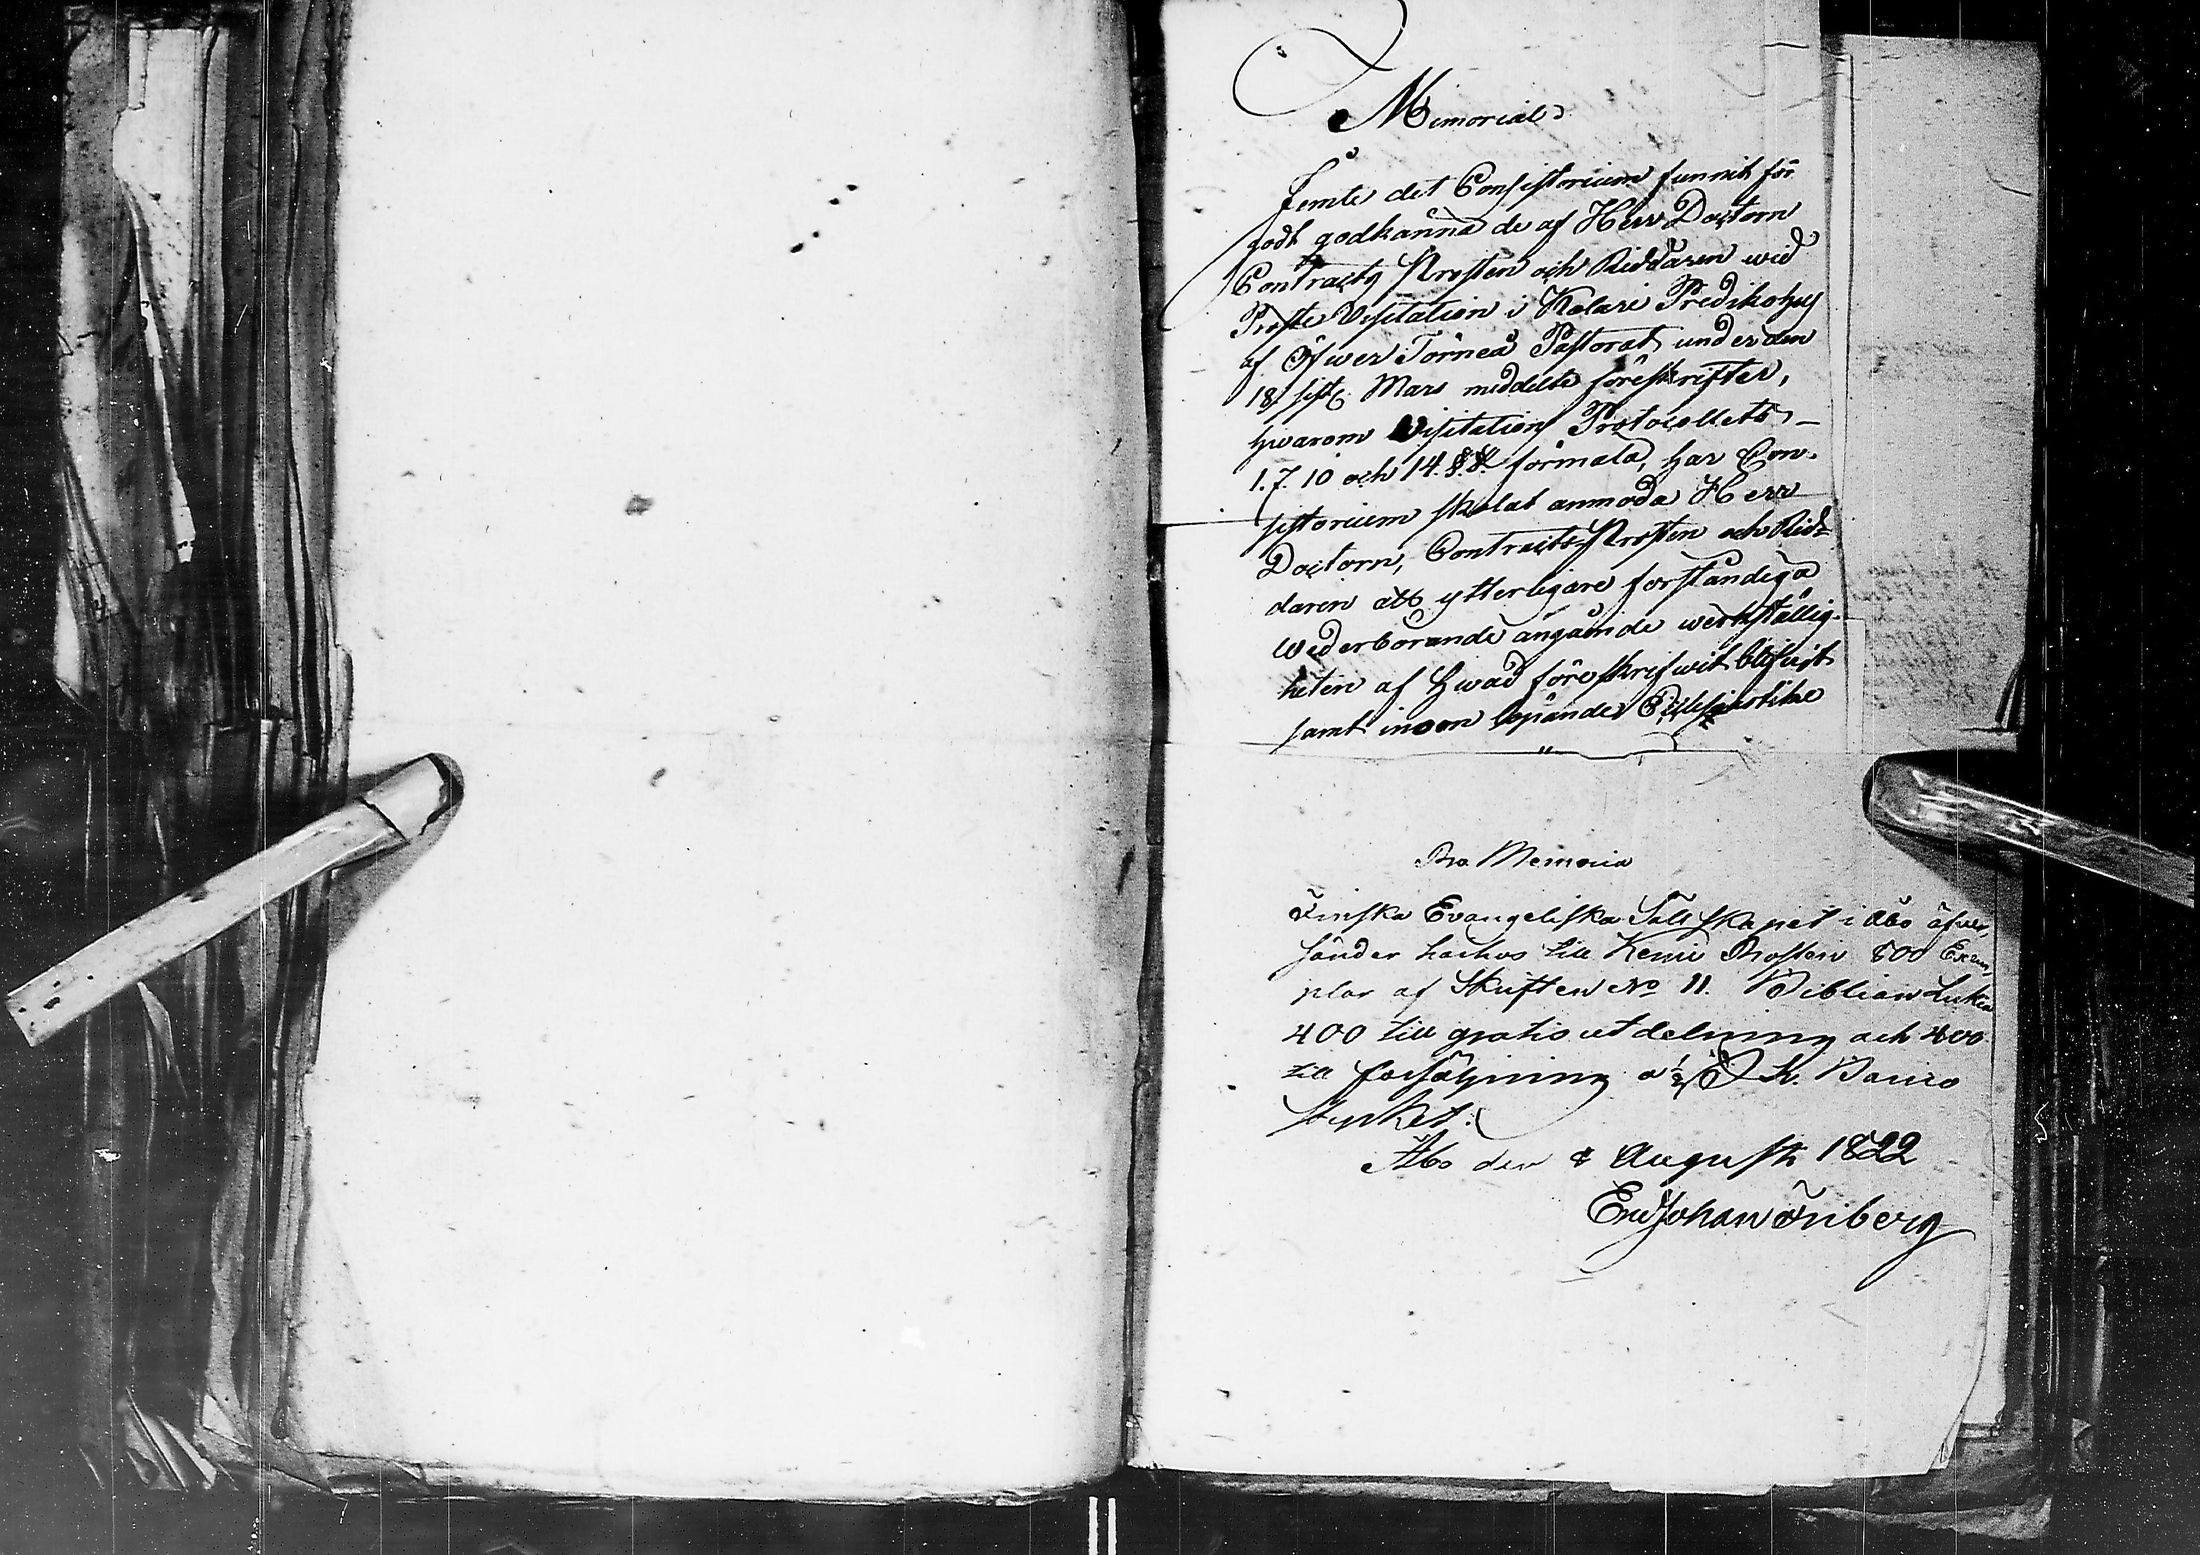 Memorial
Jemte det Consistorium funnit för
godt godkänna de af Herr Doctorn
Contracts Prosten och Riddaren wid
Proste Visitation i Kolari Predikohus
af Öfwer Torneå Pastorat under den
18 sistl. Mars meddelte föreskrifter,
hwarom Visitations Protocollets
1. 7. 10 och 14. §.§. förmäla, har Con-
sistorium skolat anmoda Herr
Doctorn, Contracts-Prosten och Rid-
daren att ytterligare förständiga
Wederbörande angående werkställig-
heten af hwad föreskrifwit blifwit
samt inom löpande Ecclesiastike
Pro Memoria
Finska Evangeliska Sällskapet i Åbo öfver,
sänder härhos till Kemi Prosteri 800 Exem,
plar af Skriften No 11. Biblian Lukia
400 till gratis utdelning och 400
till försäljning a ½ S. Banco
stycket.
Åbo den 8 Augusti 1822
Eric Johan Friberg